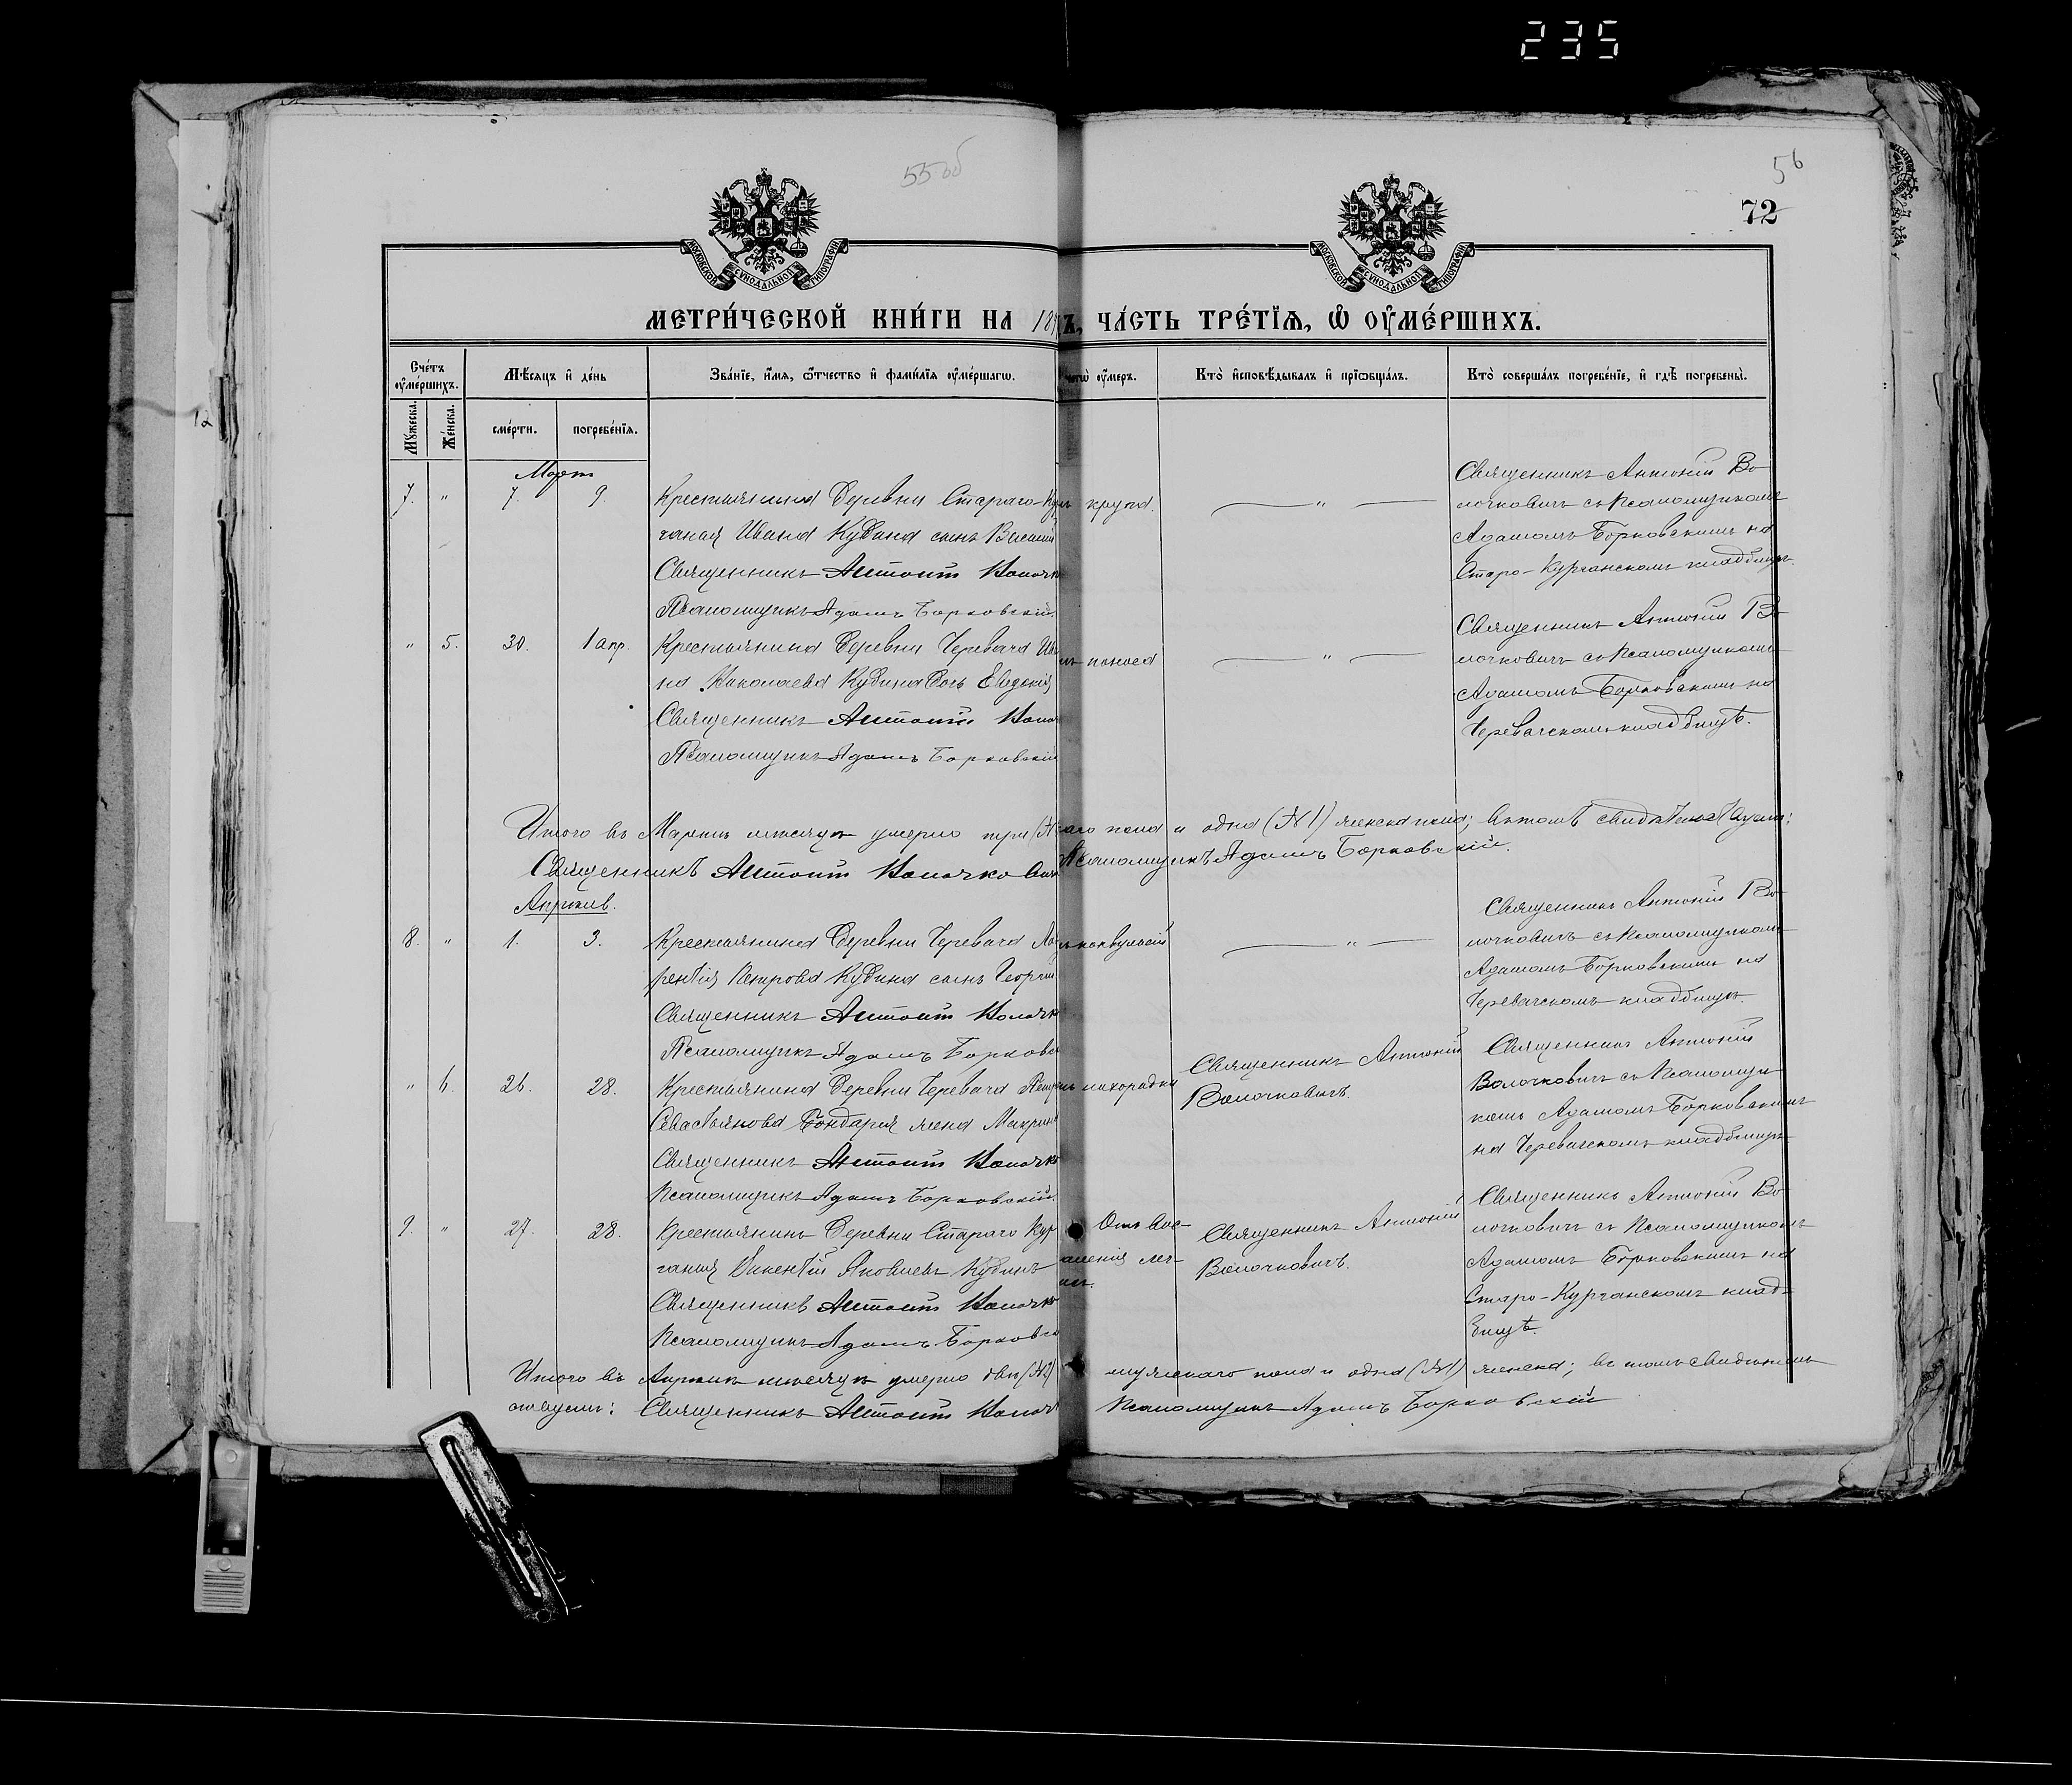 235
55 об
56
72
МОСКОВСКОЙ СѴНОДАЛЬНОЙ ТИПОГРАФІИ
МОСКОВСКОЙ СѴНОДАЛЬНОЙ ТИПОГРАФІИ
МЕТРИ́ЧЕСКОЙ КНИ́ГИ НА 189 Ъ, ЧА́СТЬ ТРЕ́ТЇѦ, Ѽ ОУ҆МЕ́РШИХЪ.
Сче́тъ оу҆ме́ршихъ.
Мѣ́сѧцъ и҆ де́нь
Зва́нїе, и҆́мѧ, ѻ҆́тчество и҆ фами́лїѧ оу҆ме́ршагѡ.
чегѡ̀ оу҆́меръ.
Кто̀ и҆сповѣ́дывалъ и҆ прїѡбща́лъ.
Кто̀ соверша́лъ погребе́нїе, и҆ гдѣ̀ погребены̀.
Мꙋ́жеска.
Же́нска.
сме́рти.
погребе́нїѧ.
Мартъ
7. " 7. 9. Крестьянина деревни Стараго-Кур
ганья Ивана Кудина сынъ Василій
Священникъ Антоній Волочк
Псаломщикъ Адамъ Борковскій.
крупа.
"
Священникъ Антоній Во-
лочковичъ съ Псаломщикомъ
Адамомъ Борковскимъ на
Старо-Курганскомъ кладбищѣ.
" 5. 30. 1 апр. Крестьянина деревни Черевача Ива
на Николаева Кудина дочь Евдокія
Священникъ Антоній Волоч
Псаломщикъ Адамъ Борковскій
поноса
"
Священникъ Антоній Во-
лочковичъ съ Псаломщикомъ
Адамомъ Борковскимъ на
Черевачскомъ кладбищѣ.
Итого въ Мартѣ мѣсяцѣ умерло три (№ аго пола и одна (№ 1) женска пола; въ томъ свидѣтельствуемъ:
Священникъ Антоній Волочкович Псаломщикъ Адамъ Борковскій.
Апрѣль.
8. " 1. 3. Крестьянина деревни Черевача Лав
рентія Петрова Кудина сынъ Георгій
Священникъ Антоній Волочк
Псаломщикъ Адамъ Борковс
конвульсій
"
Священникъ Антоній Во-
лочковичъ съ Псаломщикомъ
Адамомъ Борковскимъ на
Черевачскомъ кладбищѣ.
" 6. 26. 28. Крестьянина деревни Черевача Петра
Севастьянова Бондаря жена Макрина
Священникъ Антоній Волочко
Псаломщикъ Адамъ Борковскій.
лихорадки
Священникъ Антоній
Волочковичъ.
Священникъ Антоній
Волочковичъ съ Псаломщи-
комъ Адамомъ Борковскимъ
на Черевачскомъ кладбищѣ
9. " 27. 28. Крестьянинъ деревни Стараго Кур
ганья Викентій Яковлевъ Кудинъ
Священникъ Антоній Волочко
Псаломщикъ Адамъ Борковск
Отъ вос-
паленія лег-
Священникъ Антоній
Волочковичъ.
Священникъ Антоній Во-
лочковичъ съ Псаломщикомъ
Адамомъ Борковскимъ на
Старо-Курганскомъ клад-
бищѣ.
Итого въ Апрѣлѣ мѣсяцѣ умерло два (№2) мужескаго пола и одна (№1) женска; въ томъ свидѣтель
ствуемъ: Священникъ Антоній Волоч Псаломщикъ Адамъ Борковскій